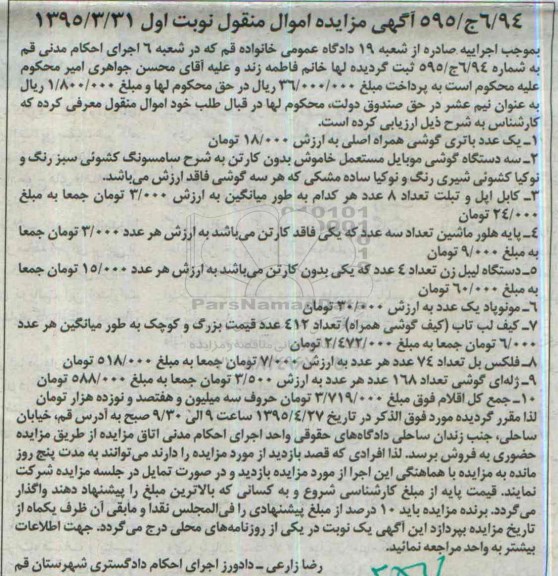 ۶/۹۴ج/۵۹۵ آگهی مزایده اموال منقول نوبت اول ۱۳۹۵/۳/۳۱
بموجب اجراییه صادره از شعبه ۱۹ دادگاه عمومی خانواده قم که در شعبه ۶ اجرای احکام مدنی قم
به شماره ۶/۹۴ج/۵۹۵ ثبت گردیده لها خانم فاطمه زند و علیه آقای محسن جواهری امیر محکوم
علیه محکوم است به پرداخت مبلغ ۳۶/۰۰۰/۰۰۰ ریال در حق محکوم لها و مبلغ ۱/۸۰۰/۰۰۰ ریال
به عنوان نیم عشر در حق صندوق دولت، محکوم لها در قبال طلب خود اموال منقول معرفی کرده که
کارشناس به شرح ذیل ارزیابی کرده است.
۱ـ یک عدد باتری گوشی همراه اصلی به ارزش ۱۸/۰۰۰ تومان
۲ـ سه دستگاه گوشی موبایل مستعمل خاموش بدون کارتن به شرح سامسونگ کشوئی سبز رنگ و
نوکیا کشوئی شیری رنگ و نوکیا ساده مشکی که هر سه گوشی فاقد ارزش می‌باشد.
۳ـ کابل اپل و تبلت تعداد ۸ عدد هر کدام به طور میانگین به ارزش ۳/۰۰۰ تومان جمعا به مبلغ
۲۴/۰۰۰ تومان
۴ـ پایه هلور ماشین تعداد سه عدد که یکی فاقد کارتن می‌باشد به ارزش هر عدد ۳/۰۰۰ تومان جمعا
به مبلغ ۹/۰۰۰ تومان
۵ـ دستگاه لیبل زن تعداد ۴ عدد که یکی بدون کارتن می‌باشد به ارزش هر عدد ۱۵/۰۰۰ تومان جمعا
به مبلغ ۶۰/۰۰۰ تومان
۶ـ مونوپاد یک عدد به ارزش ۳۰/۰۰۰ تومان
۷ـ کیف لب تاب (کیف گوشی همراه) تعداد ۴۱۲ عدد قیمت بزرگ و کوچک به طور میانگین هر عدد
۶/۰۰۰ تومان جمعا به مبلغ ۲/۴۷۲/۰۰۰ تومان
۸ـ فلکس بل تعداد ۷۴ عدد هر عدد به ارزش ۷/۰۰۰ تومان جمعا به مبلغ ۵۱۸/۰۰۰ تومان
۹ـ ژله‌ای گوشی تعداد ۱۶۸ عدد هر عدد به ارزش ۳/۵۰۰ تومان جمعا به مبلغ ۵۸۸/۰۰۰ تومان
۱۰ـ جمع کل اقلام فوق مبلغ ۳/۷۱۹/۰۰۰ تومان حروف سه میلیون و هفتصد و نوزده هزار تومان
لذا مقرر گردیده مورد فوق الذکر در تاریخ ۱۳۹۵/۴/۲۷ ساعت ۹ الی ۹/۳۰ صبح به آدرس قم، خیابان
ساحلی، جنب زندان ساحلی دادگاه‌های حقوقی واحد اجرای احکام مدنی اتاق مزایده از طریق مزایده
حضوری به فروش برسد. لذا افرادی که قصد بازدید از مورد مزایده را دارند می‌توانند به مدت پنج روز
مانده به مزایده با هماهنگی این اجرا از مورد مزایده بازدید و در صورت تمایل در جلسه مزایده شرکت
نمایند. قیمت پایه از مبلغ کارشناسی شروع و به کسانی که بالاترین مبلغ را پیشنهاد دهند واگذار
می‌گردد. برنده مزایده باید ۱۰ درصد از مبلغ پیشنهادی را فی‌المجلس نقدا و مابقی آن ظرف یکماه از
تاریخ مزایده بپردازد این آگهی یک نوبت در یکی از روزنامه‌های محلی درج می‌گردد. جهت اطلاعات
بیشتر به واحد مراجعه نمائید.
رضا زارعی ـ دادورز اجرای احکام دادگستری شهرستان قم